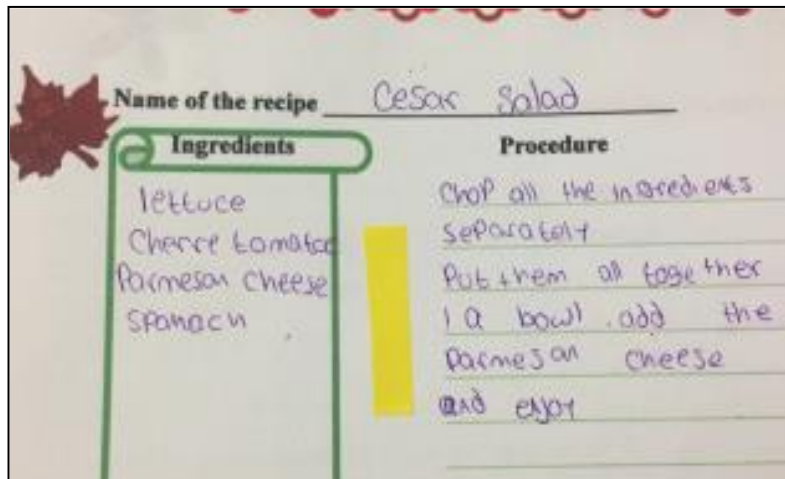 Name of the recipe Cesar Salad
Ingredients
lettuce
Cherre tomatoe
Parmesan cheese
Spanach
Procedure
Chop all the ingredients
separately
Put them all together
I a bowl .add the
parmesan cheese
and enjoy